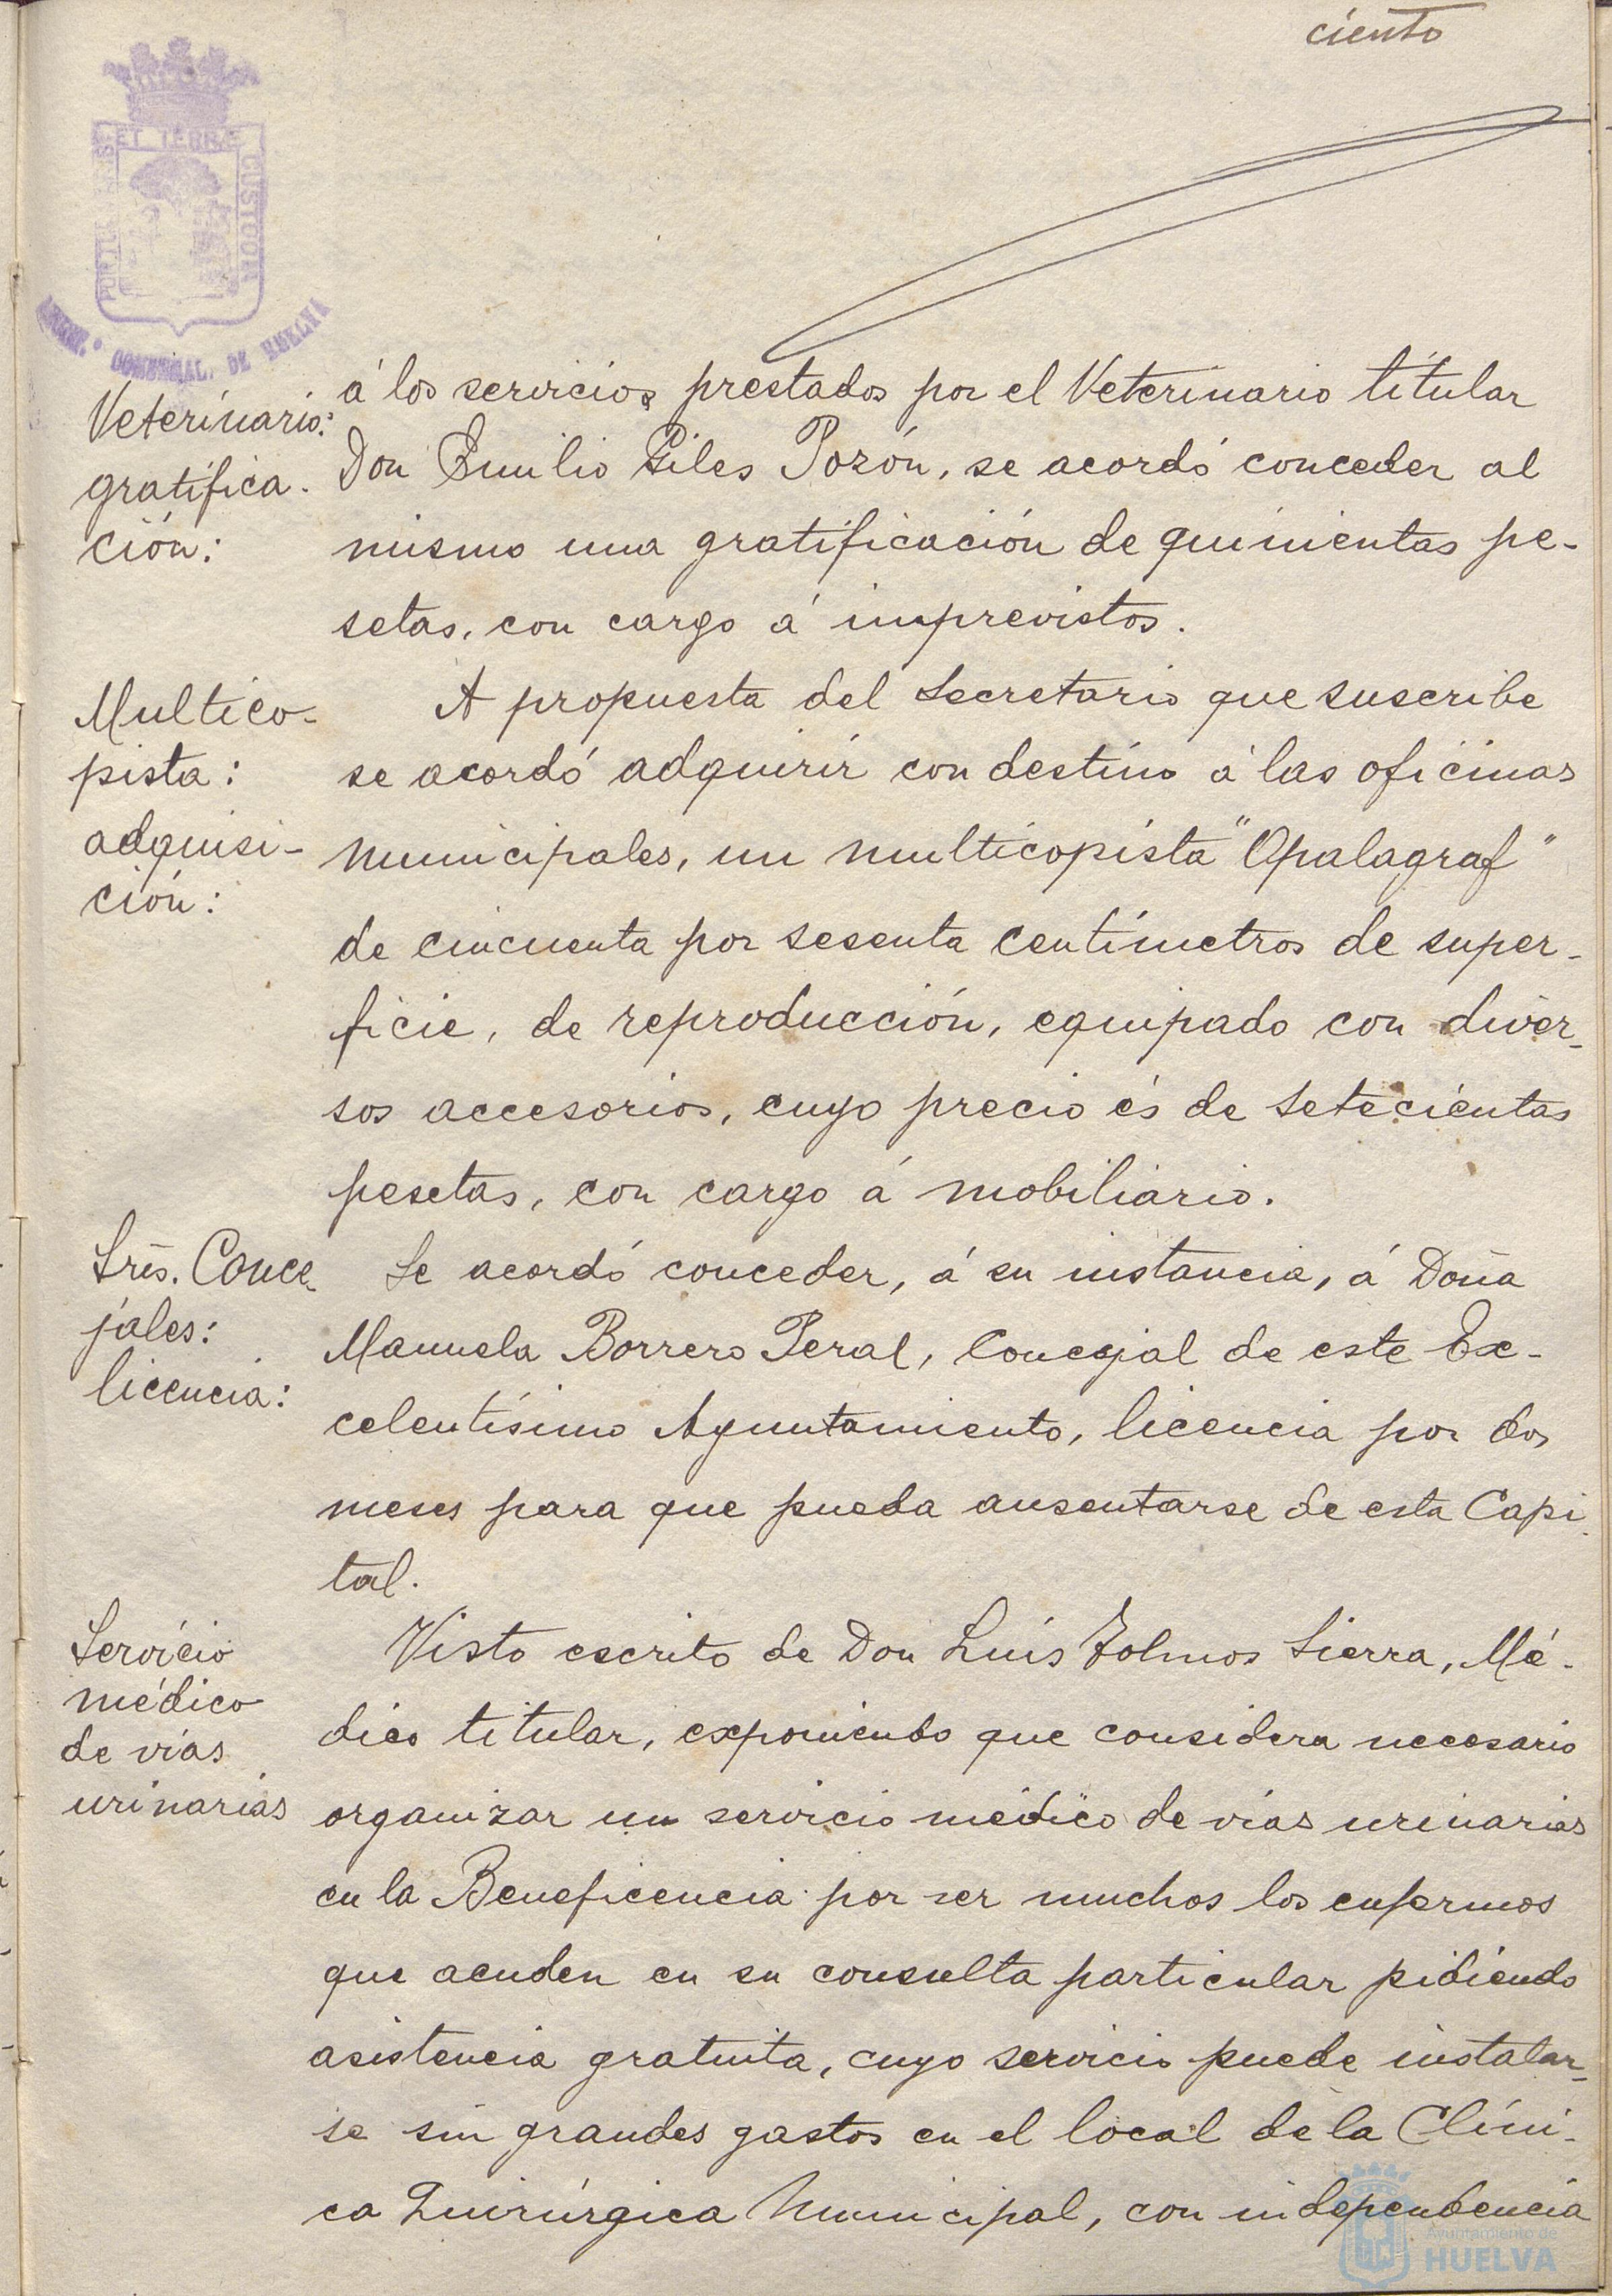 ciento
ET TERRÆ
CUSTODIA
COMUNAL. DE HUELVA
Veterinario:
gratifica-
ción:
á los servicios prestados por el Veterinario titular
Don Emilio Giles Pozón, se acordó conceder al
mismo una gratificación de quinientas pe-
setas, con cargo á imprevistos.
Multico-
pista:
adquisi-
ción:
A propuesta del Secretario que suscribe
se acordó adquirir con destino á las oficinas
municipales, un multicopista "Opalagraf"
de cincuenta por sesenta centímetros de super-
ficie, de reproducción, equipado con diver-
sos accesorios, cuyo precio és de setecientas
pesetas, con cargo á mobiliario.
Srēs. Conce-
jales:
licencia:
Se acordó conceder, á su instancia, á Doña
Manuela Borrero Peral, Concejal de este Ex-
celentísimo Ayuntamiento, licencia por dos
meses para que pueda ausentarse de esta Capi-
tal.
Servicio
médico
de vías
urinarias
Visto escrito de Don Luís Tolmos Sierra, Mé-
dico titular, exponiendo que considera necesario
organizar un servicio médico de vías urinarias
en la Beneficencia por ser muchos los enfermos
que acuden en su consulta particular pidiendo
asistencia gratuita, cuyo servicio puede instalar-
se sin grandes gastos en el local de la Clíni-
ca Quirúrgica Municipal, con independencia
Ayuntamiento de
HUELVA